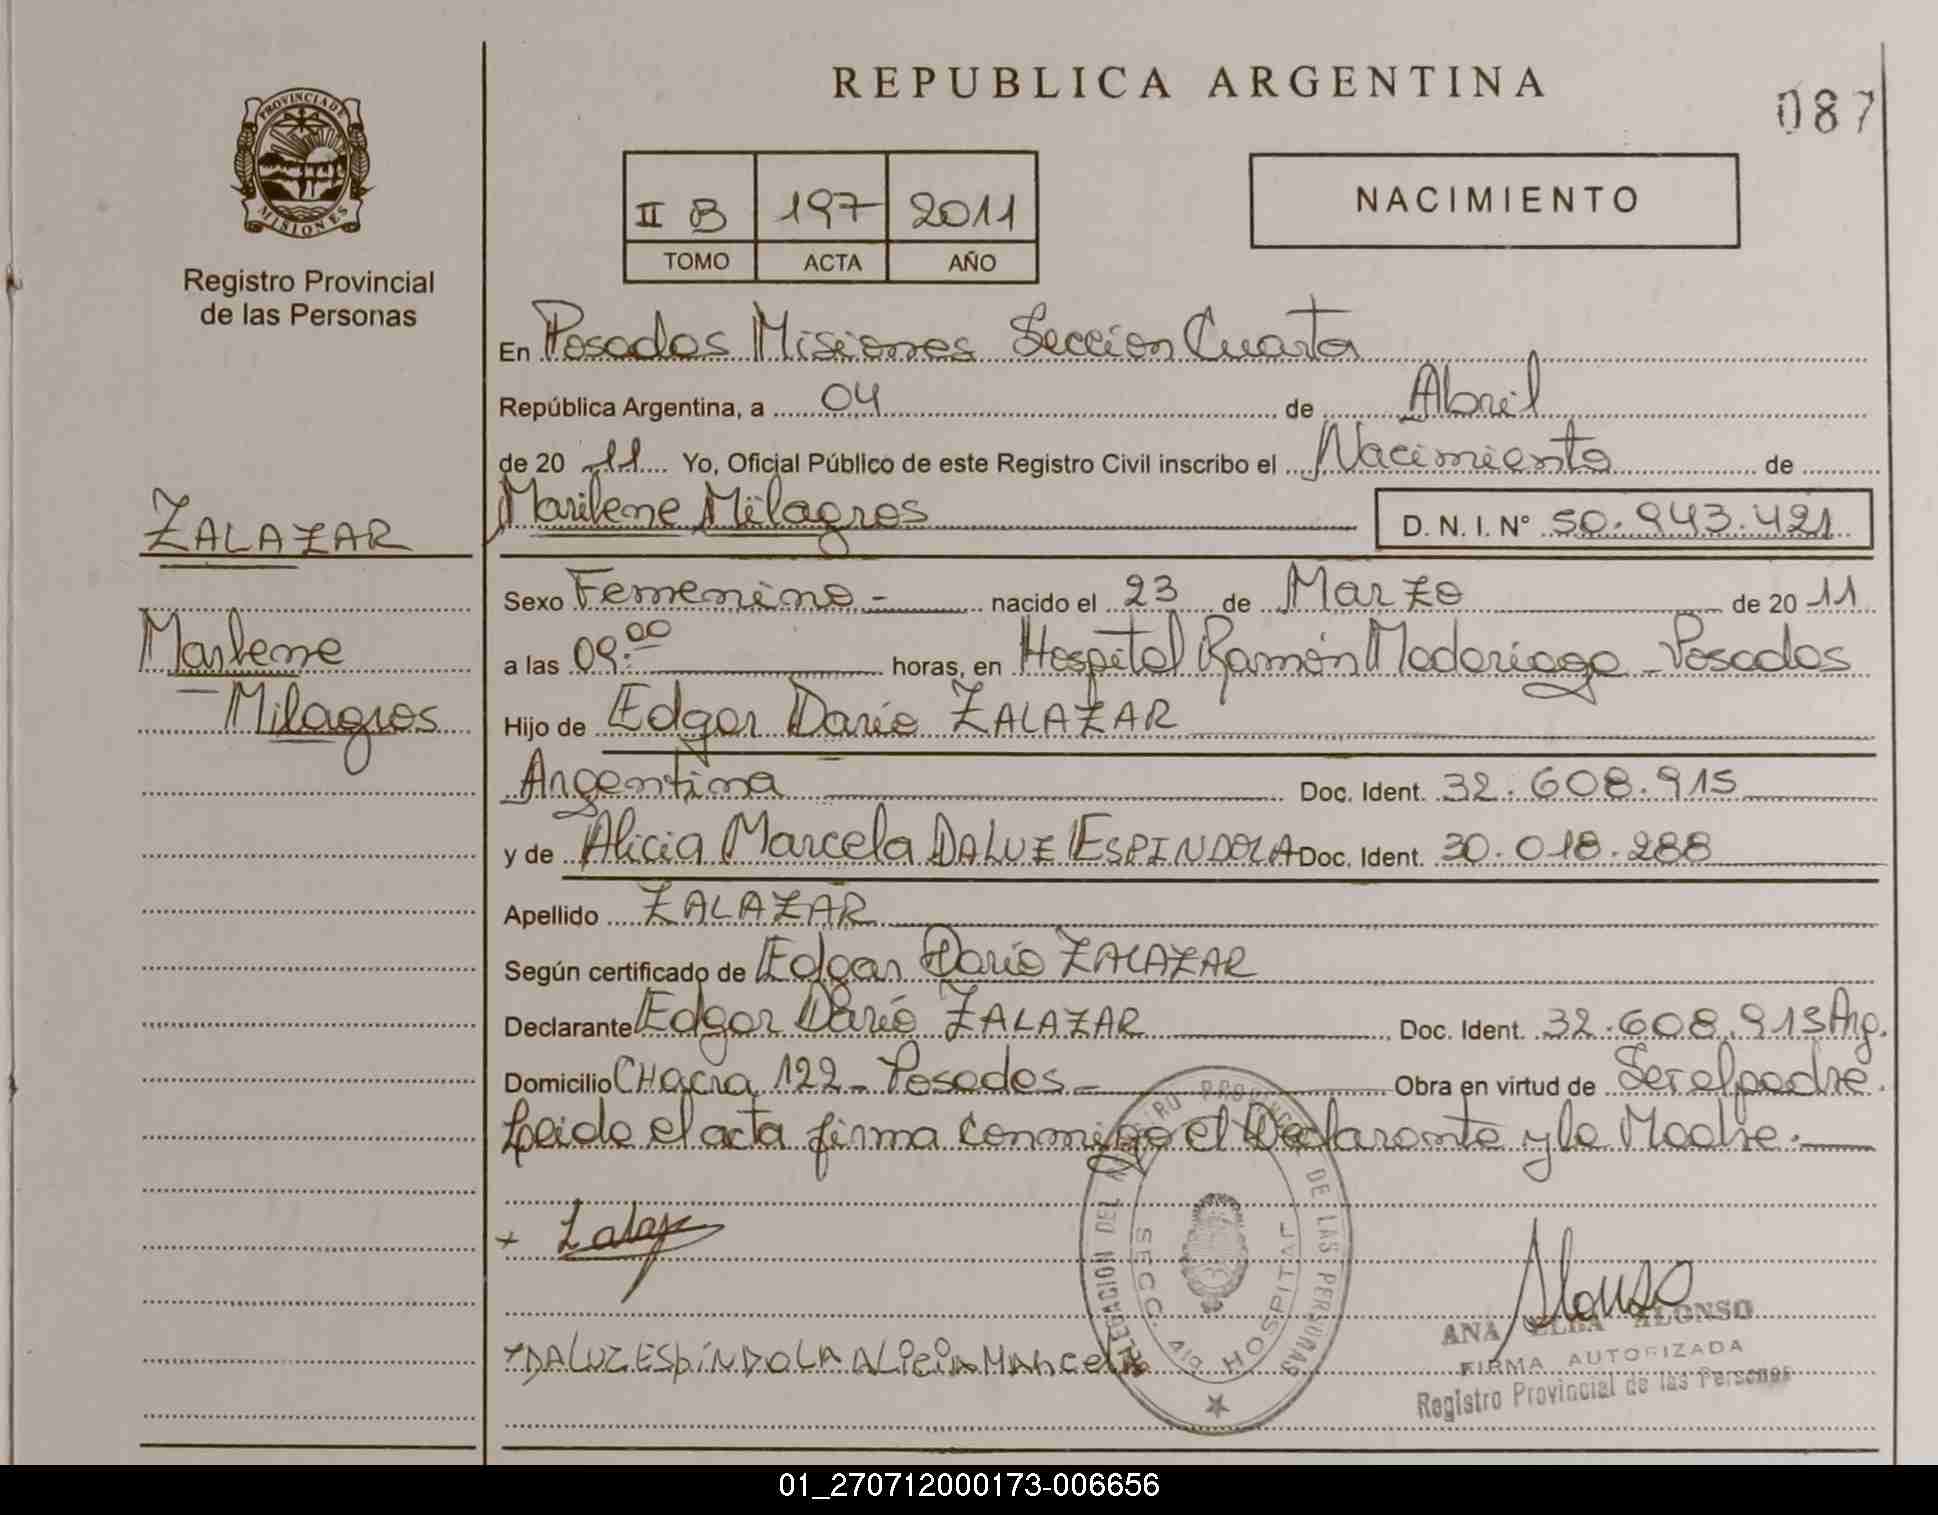 REPUBLICA ARGENTINA
087
PROVINCIA DE
MISIONES
Registro Provincial
de las Personas
II B 197 2011
TOMO ACTA AÑO
NACIMIENTO
En Posadas Misiones Sección Cuarta
República Argentina, a 04 de Abril
de 20 11 Yo, Oficial Público de este Registro Civil inscribo el Nacimiento de
Marilene Milagros D. N. I. N° 50.943.421
ZALAZAR
Sexo Femenino - nacido el 23 de Marzo de 20 11
Marlene
a las 09:00 horas, en Hospital Ramón Madariaga - Posadas
Milagros
Hijo de Edgar Darío ZALAZAR
Argentina Doc. Ident. 32.608.915
y de Alicia Marcela DALUZ ESPINDOLA Doc. Ident. 30.018.288
Apellido ZALAZAR
Según certificado de Edgar Darío ZALAZAR
Declarante Edgar Darío ZALAZAR Doc. Ident. 32.608.915 Arg.
Domicilio CHacra 122 - Posadas - Obra en virtud de Ser el padre.
Leido el acta firma conmigo el Declarante y la Madre.
DELEGACION DEL REGISTRO PROVINCIAL DE LAS PERSONAS
SECC. 4ta HOSPITAL
x Zalaz
Alonso
ANA ELBA ALONSO
FIRMA AUTORIZADA
Registro Provincial de las Personas
x DALUZ ESpíNDOLA ALiCiA MARCeLA
01_270712000173-006656